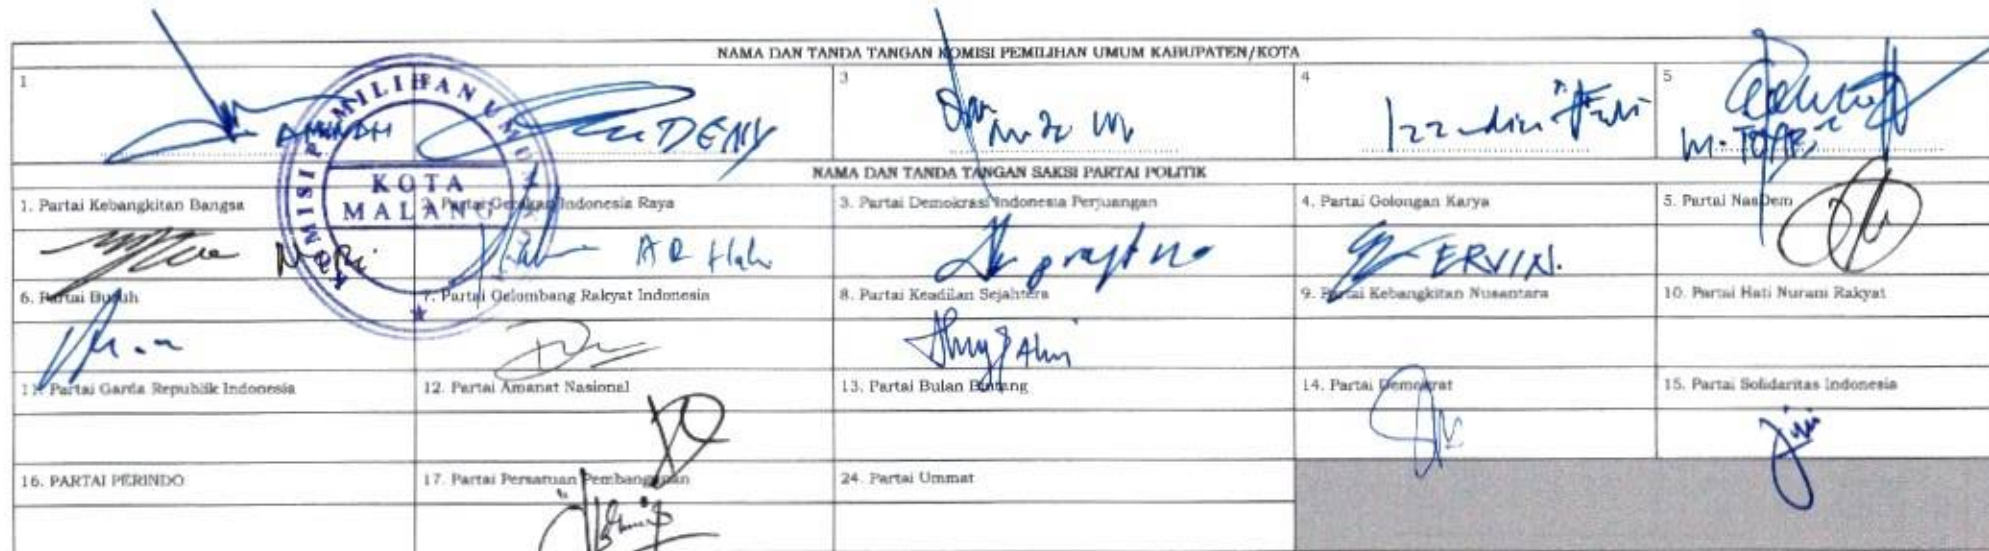 NAMA DAN TANDA TANGAN KOMISI PEMILIHAN UMUM KABUPATEN/KOTA
1 3 4 5
KOMISI PEMILIHAN UMUM
KOTA
MALANG
AMINAH DENY
NAMA DAN TANDA TANGAN SAKSI PARTAI POLITIK
1. Partai Kebangkitan Bangsa 2. Partai Gerakan Indonesia Raya 3. Partai Demokrasi Indonesia Perjuangan 4. Partai Golongan Karya 5. Partai NasDem
ERVIN.
6. Partai Buruh 7. Partai Gelombang Rakyat Indonesia 8. Partai Keadilan Sejahtera 9. Partai Kebangkitan Nusantara 10. Partai Hati Nurani Rakyat
11. Partai Garda Republik Indonesia 12. Partai Amanat Nasional 13. Partai Bulan Bintang 14. Partai Demokrat 15. Partai Solidaritas Indonesia
16. PARTAI PERINDO 17. Partai Persatuan Pembangunan 24. Partai Ummat